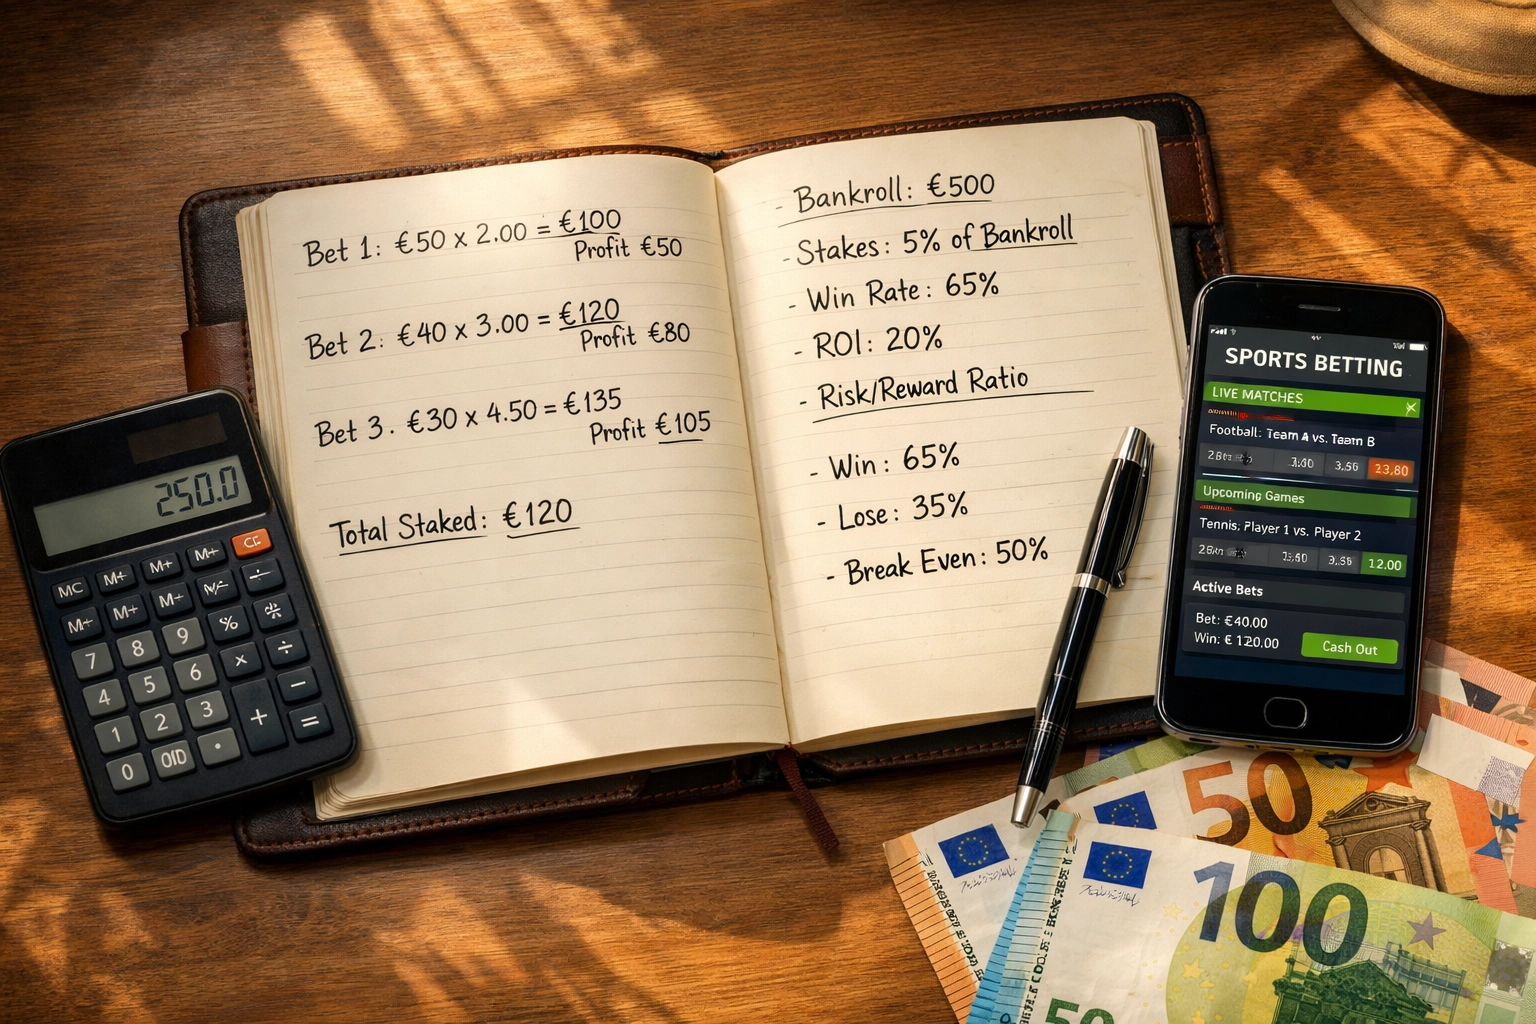 Bet 1: €50 x 2.00 = €100
Profit €50
Bet 2: €40 x 3.00 = €120
Profit €80
Bet 3. €30 x 4.50 = €135
Profit €105
Total Staked: €120
- Bankroll: €500
- Stakes: 5% of Bankroll
- Win Rate: 65%
- ROI: 20%
- Risk/Reward Ratio
- Win: 65%
- Lose: 35%
- Break Even: 50%
250.0
MC M+ M+ M+ CE
M+ M+ M+
7 8 9 %
4 5 6 × ÷
1 2 3 + −
0 . =
SPORTS BETTING
LIVE MATCHES
Football: Team A vs. Team B
23,80
Upcoming Games
Tennis: Player 1 vs. Player 2
12.00
Active Bets
Bet: €40.00
Win: € 120.00
Cash Out
50
100
50